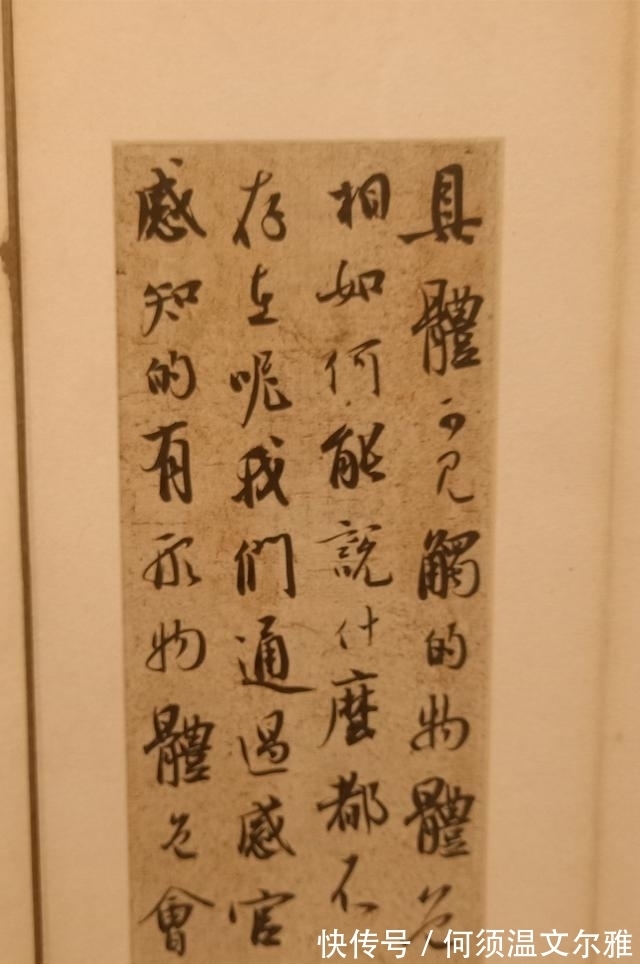 具體可見觸的物體
相如何能說什麼都不
存在呢我們通過感官
感知的有形物體會
快传号 / 何须温文尔雅